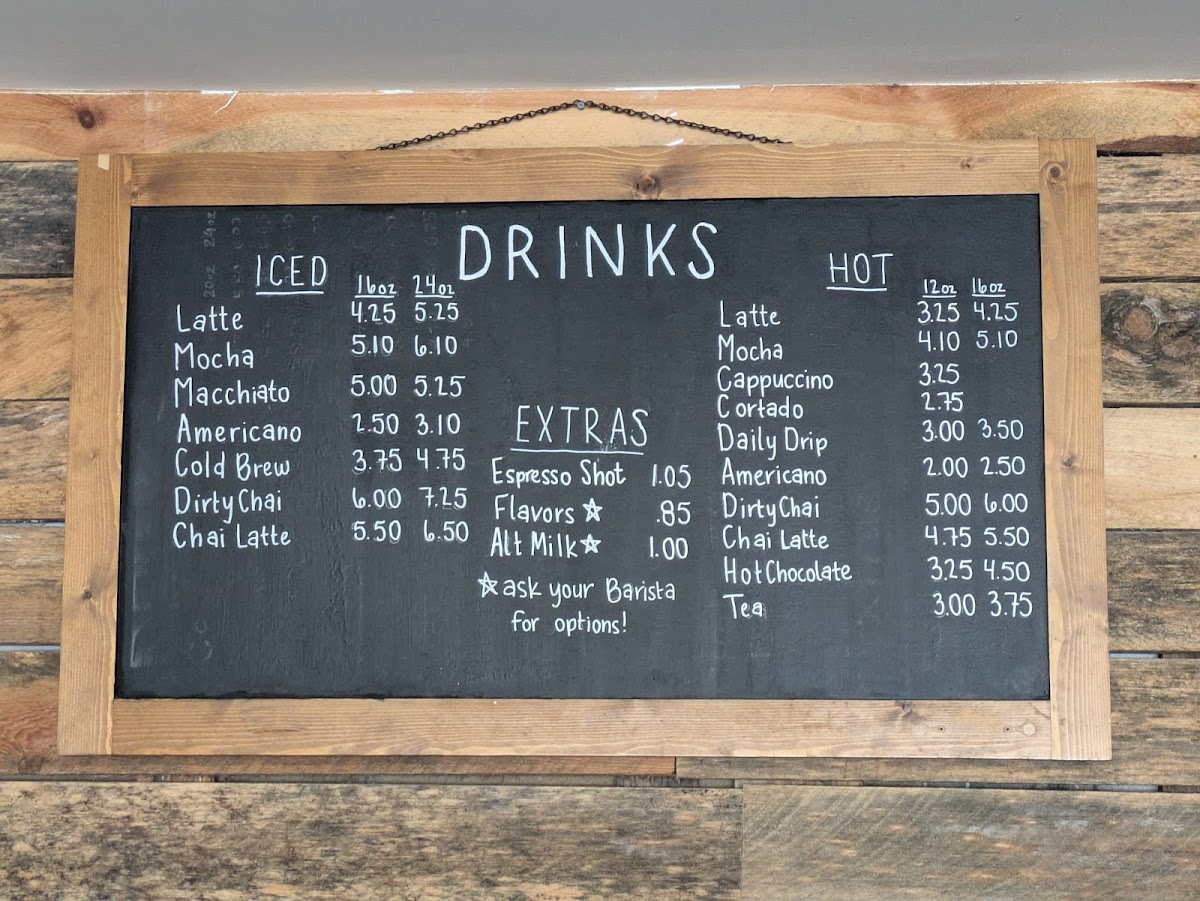 DRINKS
ICED 16oz 24oz
Latte 4.25 5.25
Mocha 5.10 6.10
Macchiato 5.00 5.25
Americano 2.50 3.10
Cold Brew 3.75 4.75
Dirty Chai 6.00 7.25
Chai Latte 5.50 6.50
EXTRAS
Espresso Shot 1.05
Flavors ☆ .85
Alt Milk ☆ 1.00
☆ ask your Barista
for options!
HOT 12oz 16oz
Latte 3.25 4.25
Mocha 4.10 5.10
Cappuccino 3.25
Cortado 2.75
Daily Drip 3.00 3.50
Americano 2.00 2.50
Dirty Chai 5.00 6.00
Chai Latte 4.75 5.50
Hot Chocolate 3.25 4.50
Tea 3.00 3.75